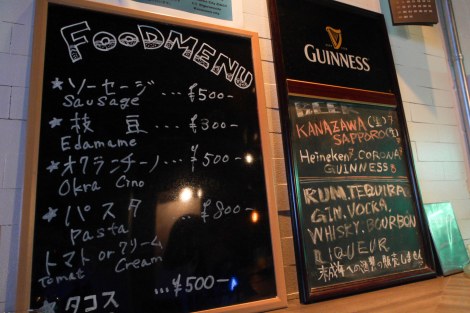 FOODMENU
★ソーセージ...¥500-
Sausage
★枝豆...¥300-
Edamame
★オクランチーノ...¥500-
Okra Cino
★パスタ...¥800-
Pasta
トマト or クリーム
Tomat Cream
★タコス ...¥500-
GUINNESS
BEER
KANAZAWA
SAPPORO
Heineken. CORONA
GUINNESS
RUM. TEQUIRA.
GIN. VOCKA.
WHISKY. BOURBON
LIQUEUR
未成年への酒類の販売しません